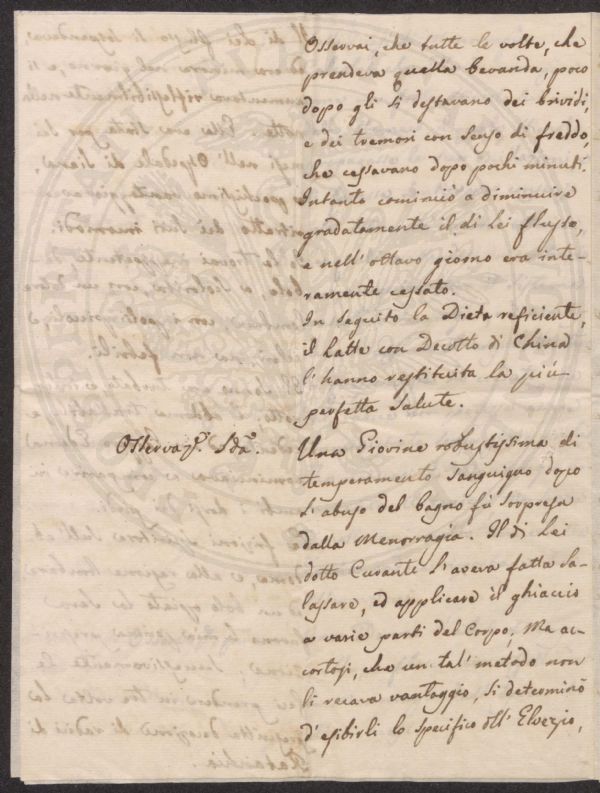 Osservai, che tutte le volte, che
prendeva quella bevanda, poco
dopo gli si destavano dei brividi,
e dei tremori con senso di freddo,
che cessavano dopo pochi minuti.
Intanto cominciò a diminuire
gradatamente il di Lei flusso,
e nell' ottavo giorno era inte-
ramente cessato.
In seguito la Dieta reficiente,
il Latte con Decotto di China
l'hanno restituita la più
perfetta salute.
Osservaz.e IIda.
Una Giovine robustissima di
temperamento sanguigno dopo
l'abuso del bagno fù sorpresa
dalla Menorragia. Il di Lei
dotto Curante l'aveva fatta sa-
lassare, ed applicare il ghiaccio
a varie parti del Corpo; Ma ac-
cortosi, che un tal' metodo non
li recava vantaggio, si determinò
d'esibirli lo specifico dell' Elvezio,